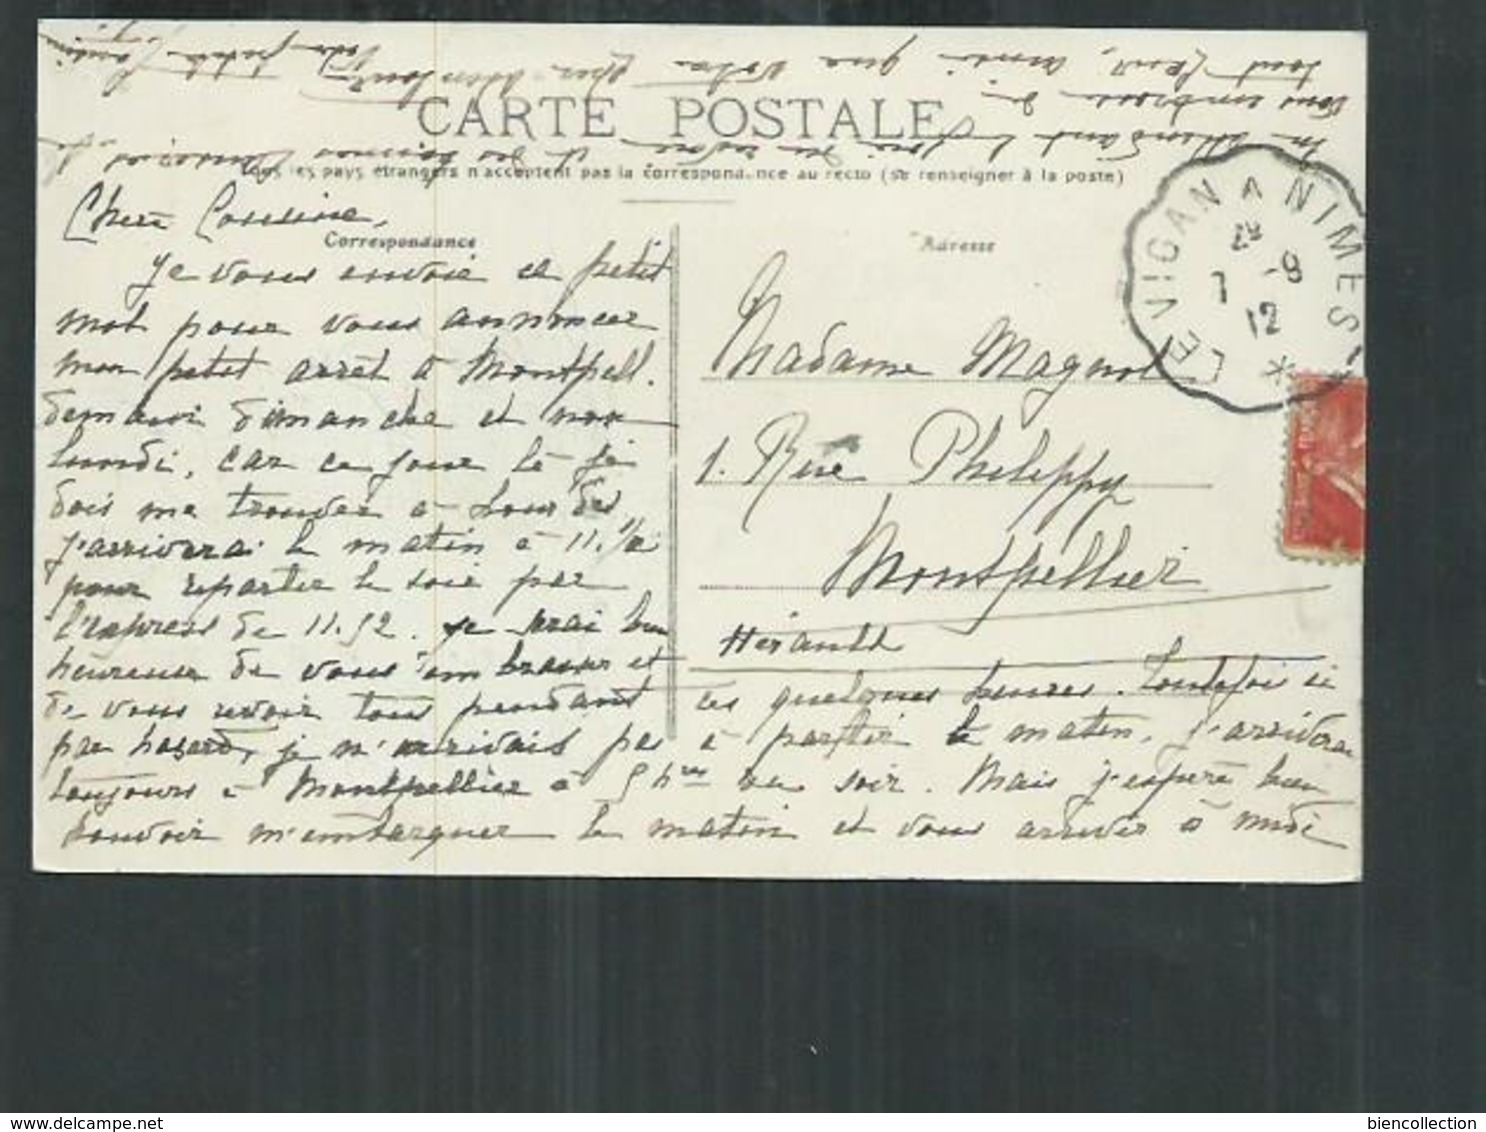 CARTE POSTALE
Tous les pays étrangers n'acceptent pas la correspondance au recto (se renseigner à la poste)
Correspondance
Adresse
LE VIGAN A NIMES
7 -9
12
Chère Cousine,
Je vous envoie ce petit
mot pour vous annoncer
mon petit arrêt à Montpell.
demain dimanche et non
lundi, car ce jour là je
dois me trouver à
j'arriverai le matin à 11.
pour repartir le soir par
l'express de 11.52. Je serai bien
heureuse de vous embrasser et
de vous revoir tous pendant ces quelques heures. Toutefois si
par hasard, je n'arrivais pas à partir le matin, j'arriverai
toujours à Montpellier à 5 hres du soir. Mais j'espère bien
pouvoir m'embarquer le matin et vous arriver à midi
En attendant le plaisir de
Vous embrasse de
tout cœur, ainsi que votre
Votre petite Cousine
Madame Magnol
1. Rue Philippy
Montpellier
Hérault
biencollection